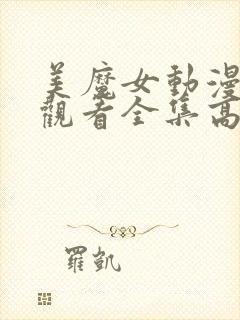 美魔女動漫
觀看全集高
羅凱